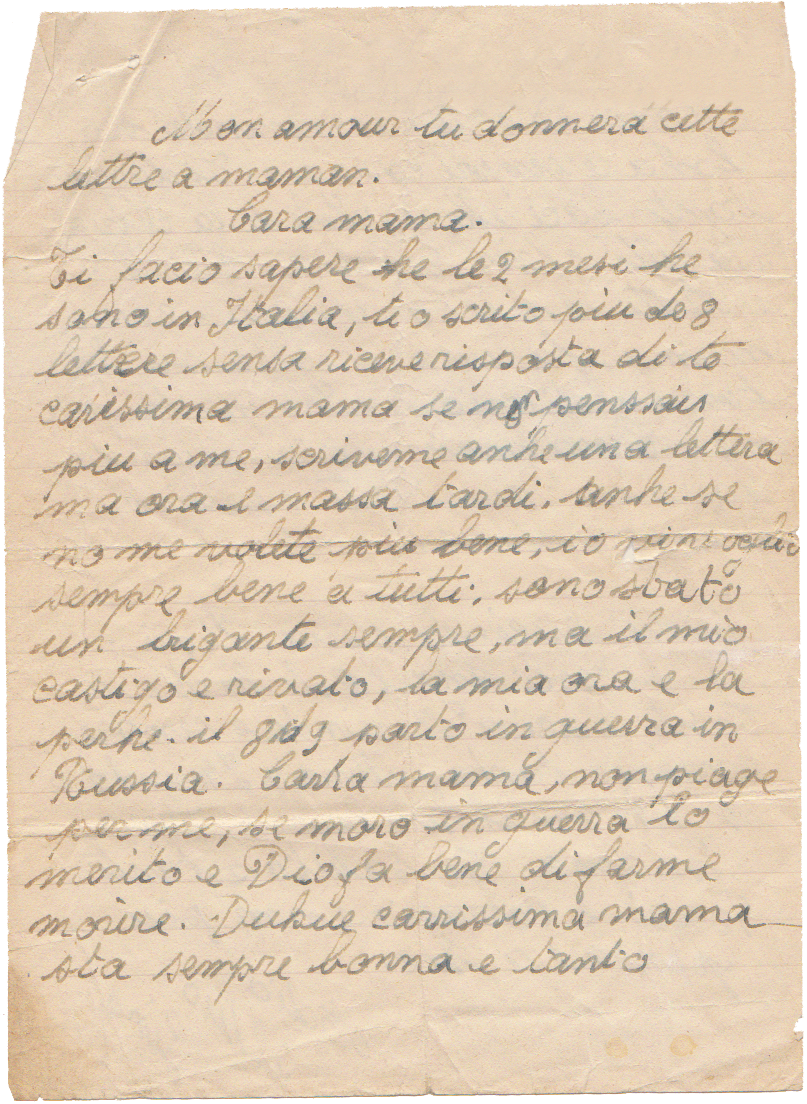 Mon amour tu donnera cette
lettre a maman.
Cara mama.
Ti facio sapere che le 2 mesi he
sono in Italia, te o scrito piu de 8
lettere sensa riceve risposta di te
carissima mama se non penssais
piu a me, scriveme anhe una lettera
ma ora e massa tardi. anhe se
no me volete piu bene, io vi voglio
sempre bene a tutti. sono stato
un brigante sempre, ma il mio
castigo e rivato, la mia ora e la
perhe. il 8 d 9 parto in guerra in
Russia. Carra mama, non piage
per me, se moro in guerra lo
merito e Dio fa bene di farme
morire. Duhue carrissima mama
sta sempre bonna e tanto